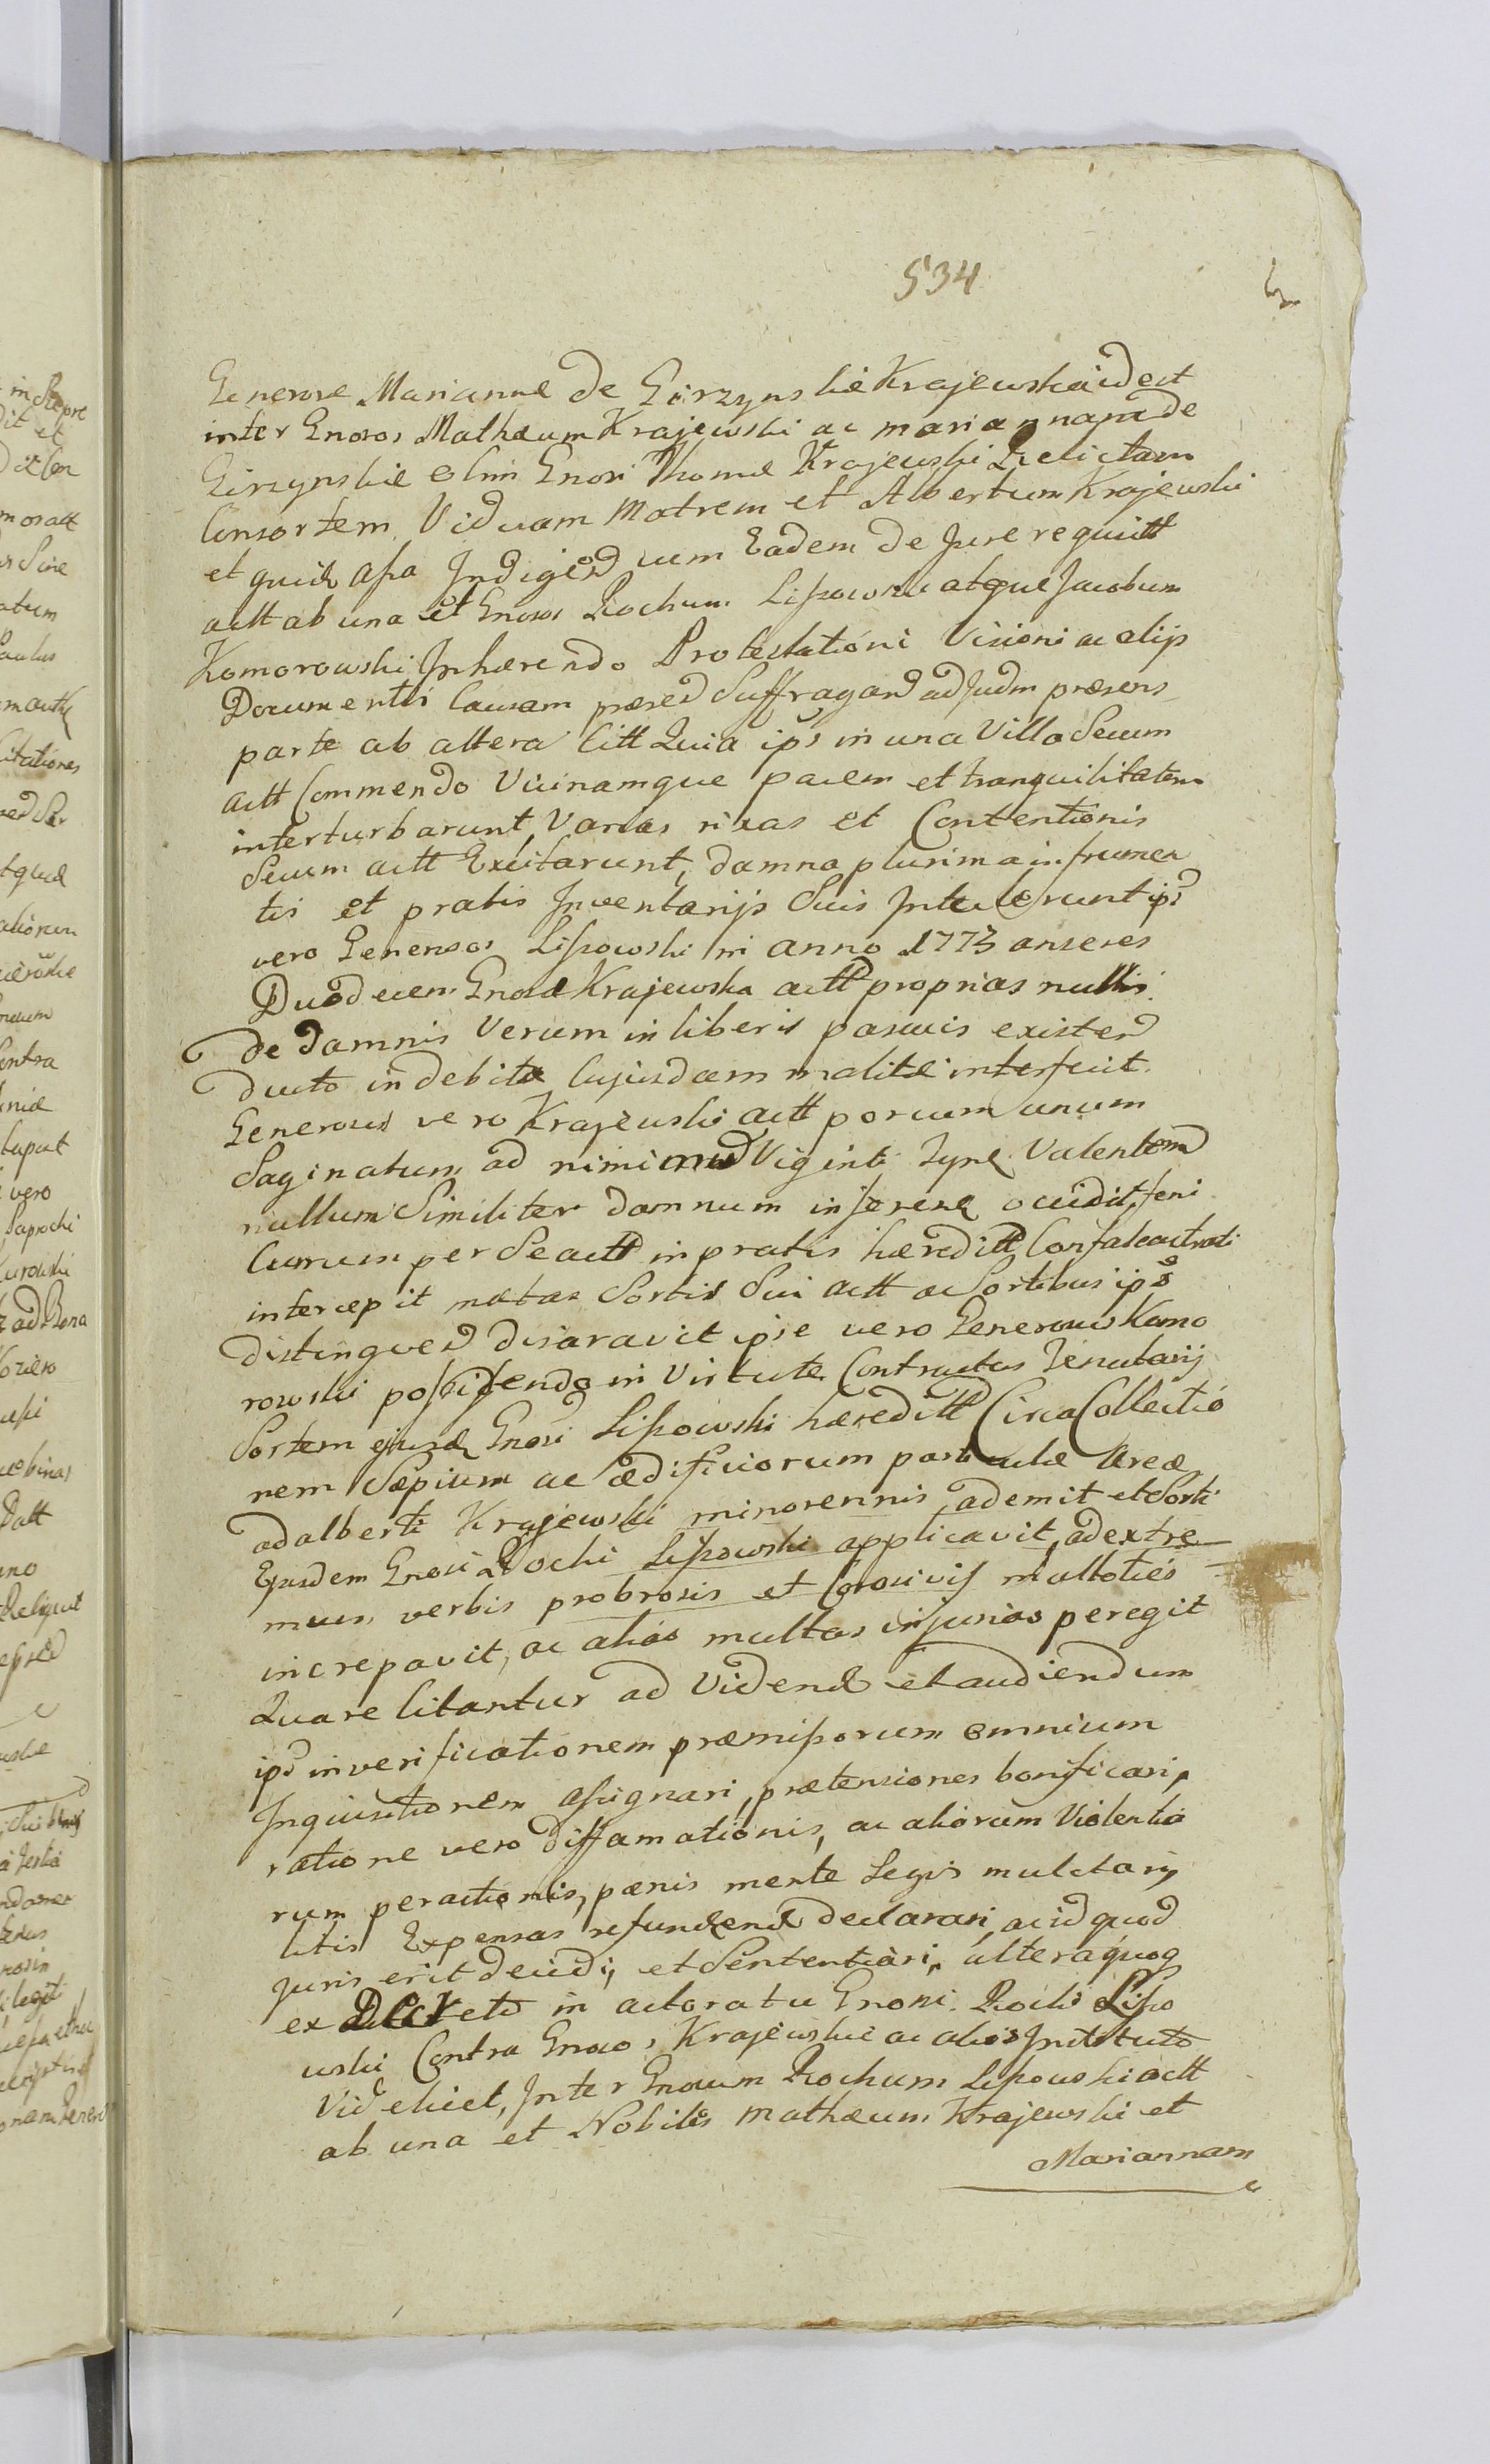 534
Generosæ Mariannæ de Girzynskie Krajewskaidest
inter Gnosos Mathæum Krajewski ac mariannam de
Girzynskie olim Gnosi Thomæ Krajewski Relictam
Consortem Viduam Matrem et Albertum Krajewski
et quid Assa Indigen cum Eadem de Jure requitt
actt ab una et Gnosos Rochum Lissowski atque Jacobum
Komorowski Inhærendo Protestationi Visioni ac alijs
Documentis Causam præsed Suffragand ad Judm præsens
parte ab altera Citt Quia ips in una Villa Secum
actt Commendo Vicinamque pacem et tranquilitatem
interturbarunt, Varias rixas et Contentionis
Secum actt Excitarunt, damna plurima in frumen
tis et pratis Inventarijs Suis Intulerunt ips
vero Generosos Lissowski in anno 1773 anseres
Duodecem Gnosæ Krajewska actt proprias nullis
de damnis Verum in liberis pascuis existen
ducto indebita Cujusdam malitiæ interfecit.
Generosus vero Krajewski actt porcum unum
Saginatum ad nimium Viginti Tynf Valentem
nullum Similiter damnum inferen occidit, feni
Currum per Se actt in pratis hæreditt Confalcastrati
intercepit metas Sortis Sui actt ac Sortibus ips
distingued disaravit ipse vero Generosus Komo
rowski possidendo in Virtute Contractus Tenutarij
Sortem ejusd Gnosi Lissowski hæreditt Circa Collectio
nem Sæpium ac ædificiorum particulæ Areæ
adalberti Krajewski minorennis ademit et Sorti
Ejusdem Gnosi Rochi Lissowski applicavit, ad extre
mum verbis probrosis et Corosivis multoties
increpavit, ac alias multas injurias peregit
Quare Citantur ad Vidend et audiendum
ips in verificationem præmissorum omnium
Inquisitionem assignari, prætensiones bonificari,
ratione vero diffamationis, ac aliorum Violentia
rum peractionis, pænis mente Legis mulctari,
litis Expensas refundend declarari, ac id quod
juris erit decidi, et Sententiari, altera quoq
ex Decreto in actoratu Gnosi Rochi Lisso
wski Contra Gnosos Krajewskie ac alios Instituto
Videlicet, Inter Gnosum Rochum Lissowski actt
ab una et Nobiles Mathæum Krajewski et
Mariannam